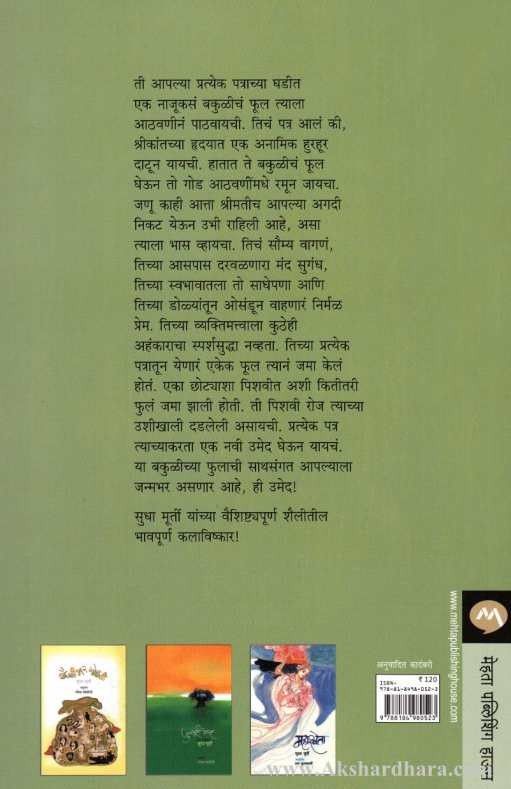 ती आपल्या प्रत्येक पत्राच्या घडीत
एक नाजूकसं बकुळीचं फूल त्याला
आठवणीनं पाठवायची. तिचं पत्र आलं की,
श्रीकांतच्या हृदयात एक अनामिक हुरहूर
दाटून यायची. हातात ते बकुळीचं फूल
घेऊन तो गोड आठवणींमधे रमून जायचा.
जणू काही आत्ता श्रीमतीच आपल्या अगदी
निकट येऊन उभी राहिली आहे, असा
त्याला भास व्हायचा. तिचं सौम्य वागणं,
तिच्या आसपास दरवळणारा मंद सुगंध,
तिच्या स्वभावातला तो साधेपणा आणि
तिच्या डोळ्यांतून ओसंडून वाहणारं निर्मळ
प्रेम. तिच्या व्यक्तिमत्त्वाला कुठेही
अहंकाराचा स्पर्शसुद्धा नव्हता. तिच्या प्रत्येक
पत्रातून येणारं एकेक फूल त्यानं जमा केलं
होतं. एका छोट्याशा पिशवीत अशी कितीतरी
फुलं जमा झाली होती. ती पिशवी रोज त्याच्या
उशीखाली दडलेली असायची. प्रत्येक पत्र
त्याच्याकरता एक नवी उमेद घेऊन यायचं.
या बकुळीच्या फुलाची साथसंगत आपल्याला
जन्मभर असणार आहे, ही उमेद!
सुधा मूर्ती यांच्या वैशिष्ट्यपूर्ण शैलीतील
भावपूर्ण कलाविष्कार!
www.mehtapublishinghouse.com
मेहता पब्लिशिंग हाऊस
महाश्वेता
सुधा मूर्ती
अनुवादित कादंबरी
ISBN-
₹ 120
978-81-8498-052-3
9788184980523
www.Akshardhara.com